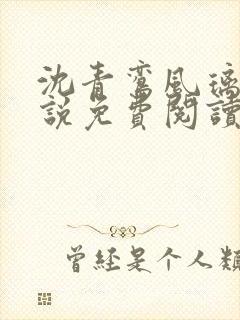 沈青鸾風璃
説免費閱讀
曾經是个人類